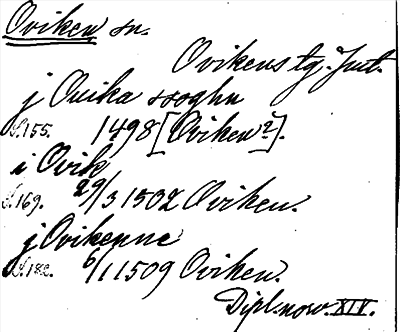 Oviken sn.
Ovikens tg. Jmt.
j Ouika sooghn
s.155. 1498 [Oviken?].
i Ovik
s.169. 29/3 1502 Oviken.
j Ovikenne
s.182. 6/1 1509 Oviken.
Dipl. now. XIV.